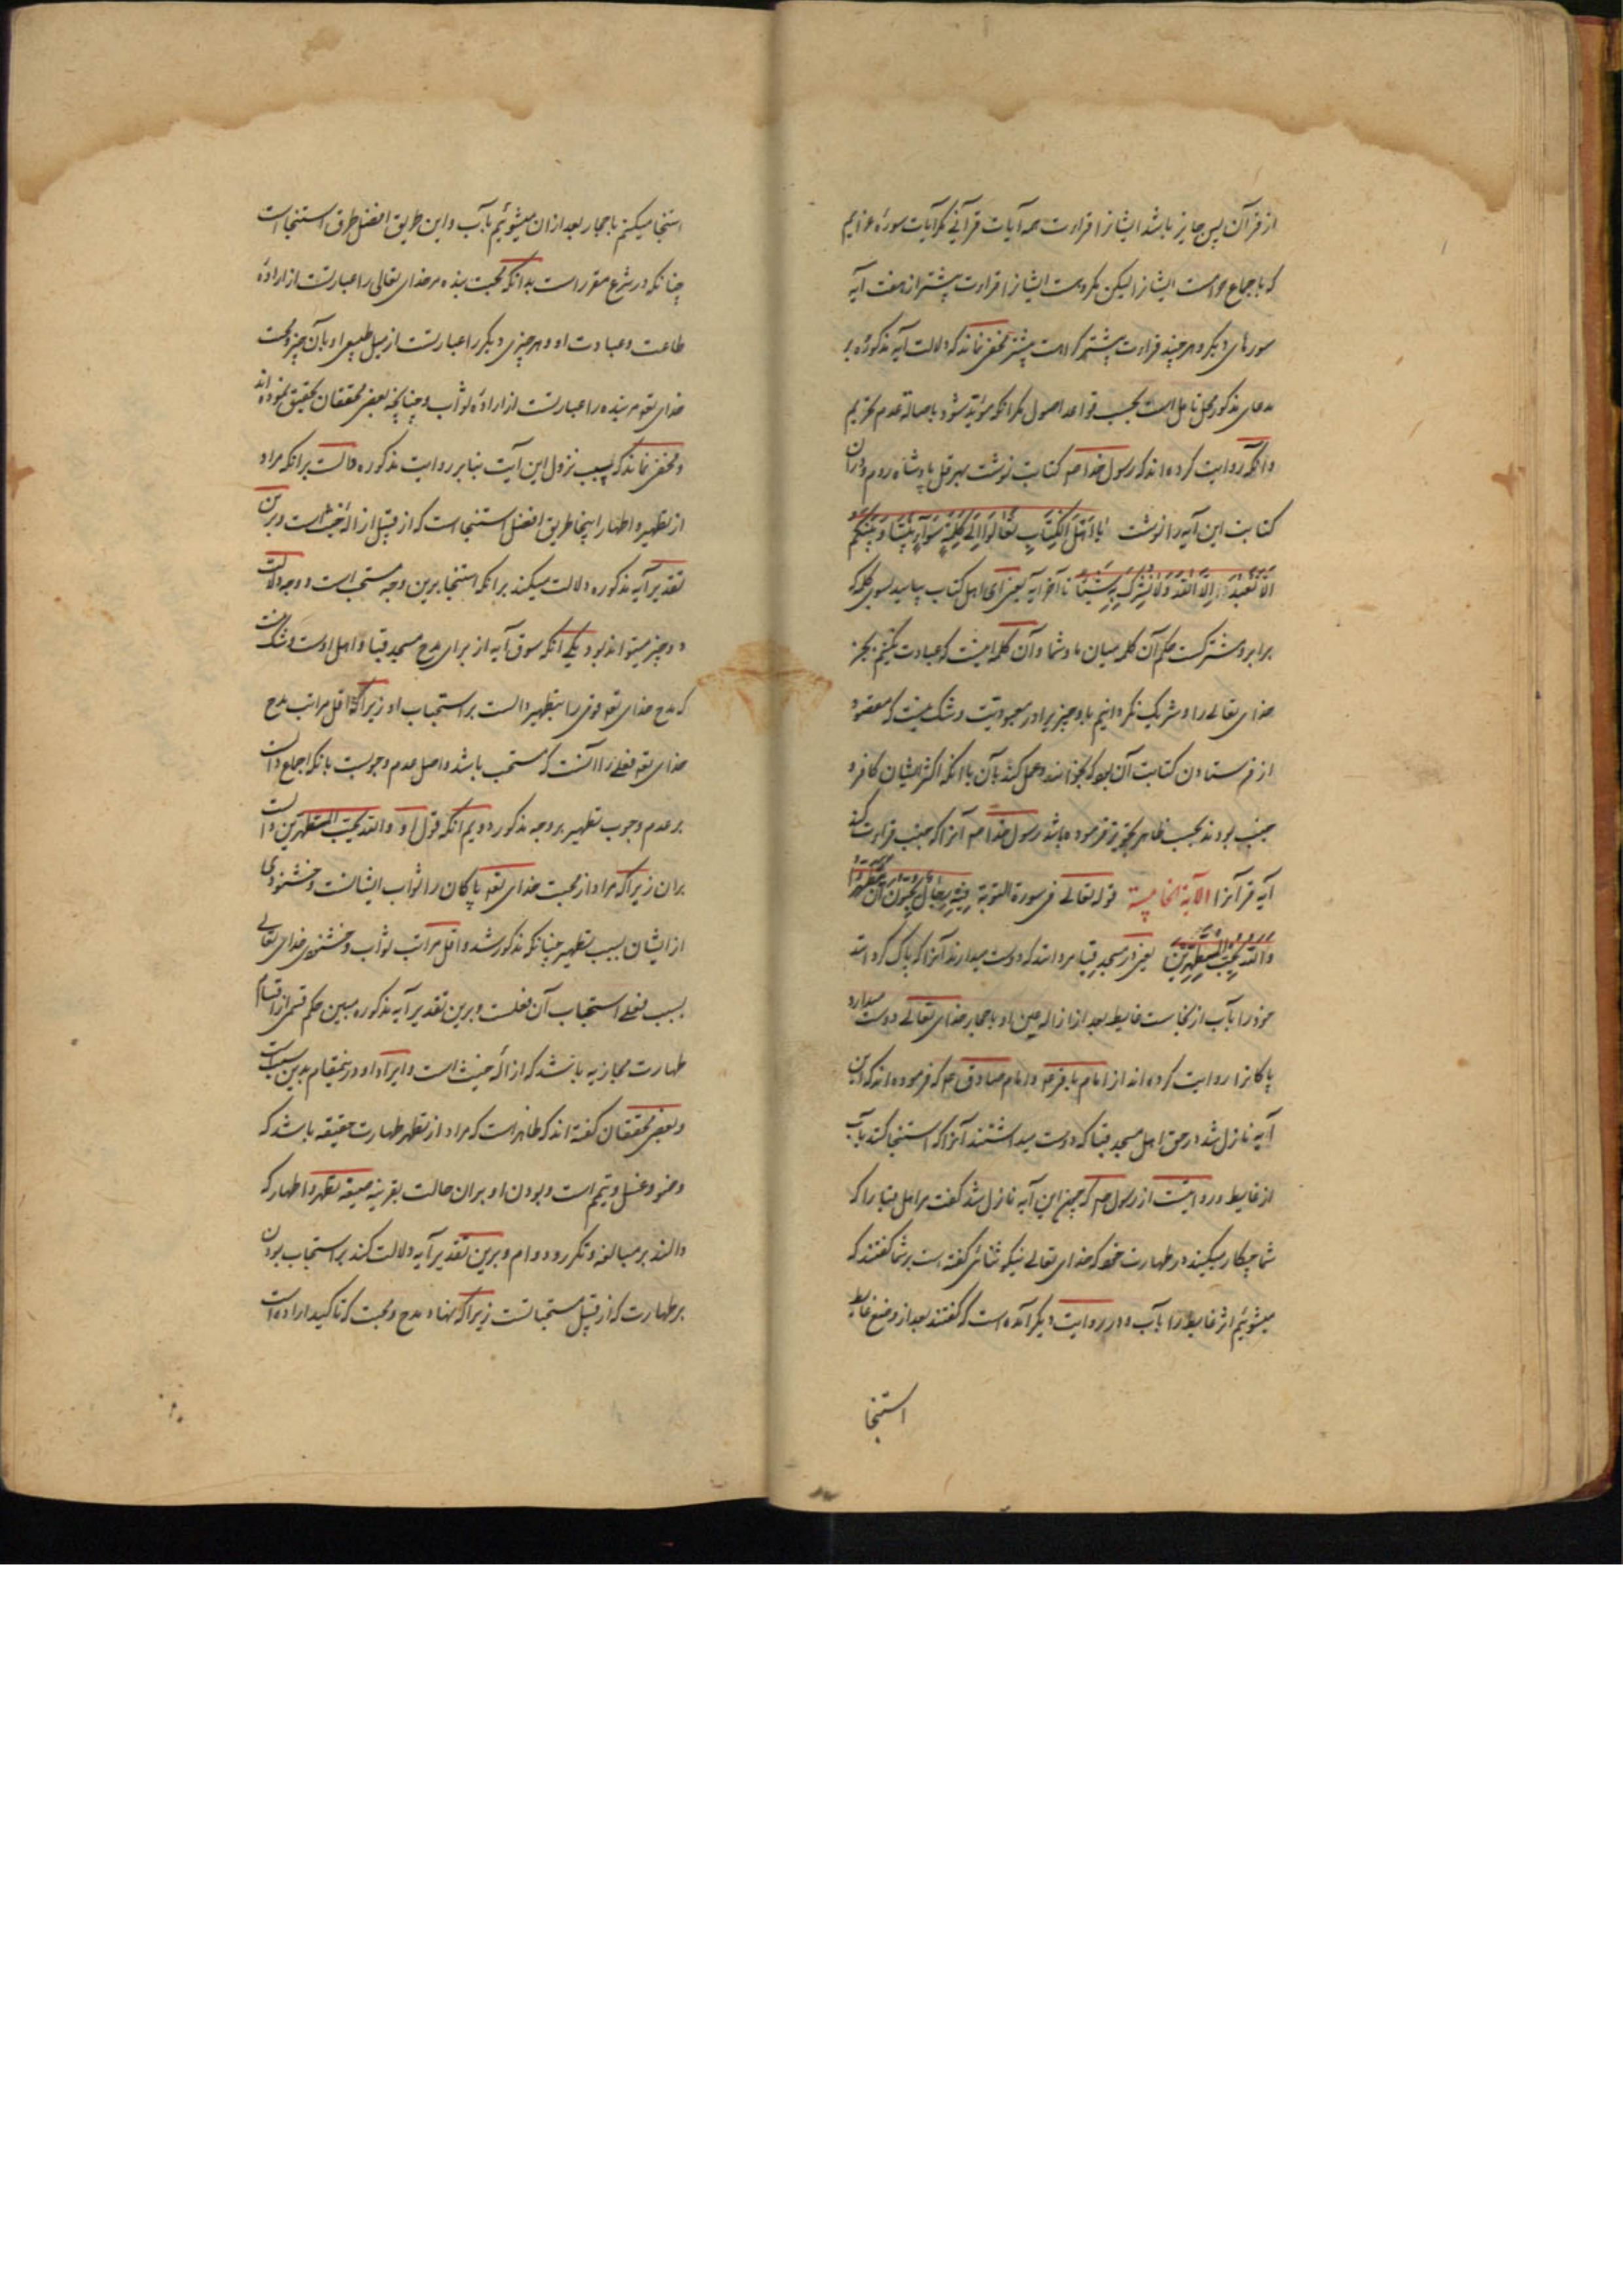 از قرآن پس جایز باشد ایشانرا قراءت همه آیات قرآنی مگر آیات سورهٔ عزایم
که باجماع حرامست ایشانرا لیکن مکروهست ایشانرا قراءت بیشتر از هفت آیه
سورهای دیگر و هر چند قراءت بیشتر کراهت بیشتر مخفی نماند که دلالت آیه مذکوره بر
مدعای مذکور محل تاملست بحسب قواعد اصول مگر انکه مؤید شود باصالة عدم تحریم
و آنکه روایت کرده اند که رسول خدا صم کتابت نوشت بهرقل پادشاه روم و در آن
کتابت این آیه را نوشت یا اهل الکتاب تعالوا الی کلمة سواء بیننا و بینکم
الا نعبد الا الله ولا نشرک به شیئا تا آخر آیه یعنی ای اهل کتاب بیایید بسوی کلمه که
برابر و مشترکست حکم آن کلمه میان ما و شما و آن کلمه اینست که عبادت نکنیم بجز
خدای تعالی را و شریک نگردانیم باو چیزیرا در معبودیت و شک نیست که مقصود
از فرستادن کتابت آن بود که بخوانند و عمل کنند بآن با انکه اکثر ایشان کافر و
جنب بودند بحسب ظاهر تجویز فرموده باشد رسول خدا صم آنرا که جنب قراءت کند
آیه قرآنرا الآیة الخامسة قوله تعالی فی سورة التوبة فیه رجال یحبون ان یتطهروا
والله یحب المتطهرین یعنی در مسجد قبا مردانند که دوست میدارند آنرا که پاک گردانند
خود را بآب از نجاست غایط بعد از ازاله عین او باحجار خدای تعالی دوست میدارد
پاکانرا روایت کرده اند از امام باقر م و امام صادق م که فرموده اند که این
آیه نازل شد در حق اهل مسجد قبا که دوست میداشتند آنرا که استنجا کنند بآب
از غایط و روایتست از رسول صم که چون این آیه نازل شد گفت مر اهل قبا را که
شما چکار میکنید در طهارت خود که خدای تعالی نیکو ثنائی گفته است بر شما گفتند که
میشوئیم اثر غایط را بآب و در روایت دیگر آمده است که گفتند بعد از وضع غایط
استنجا
استنجا میکنیم باحجار بعد از ان میشوئیم بآب و این طریق افضل طرق استنجاست
چنانکه در شرع مقرر است بدانکه محبت بنده مر خدای تعالی را عبارتست از ارادهٔ
طاعت و عبادت او و هر چیزی دیگر را عبارتست از میل طبیعی او بآن چیز و محبت
خدای تعو مر بنده را عبارتست از ارادهٔ ثواب و چنانچه بعض محققان تحقیق نموده اند
و مخفی نماند که سبب نزول این آیت بنابر روایت مذکوره دالست بر انکه مراد
از تطهیر و اطهار اینجا طریق افضل استنجاست که از قبیل ازالهٔ خبث است و برین
تقدیر آیه مذکوره دلالت میکند بر انکه استنجا برین وجه مستحب است و وجه دلالت
دو چیز میتواند بود یکی انکه سوق آیه از برای مدح مسجد قبا و اهل اوست و شک نیست
که مدح خدای تعو قومی را بتطهیر دالست بر استحباب او زیرا که اقل مراتب مدح
خدای تعو فعلی را انست که مستحب باشد و اصل عدم وجوبست بانکه اجماع دالست
بر عدم وجوب تطهیر بر وجه مذکور دویم انکه قول او والله یحب المتطهرین دالست
بران زیرا که مراد از محبت خدای تعو پاکان را ثواب ایشانست و خشنودی
از ایشان بسبب تطهیر چنانکه مذکور شد و اقل مراتب ثواب و خشنودی خدای تعالی
بسبب فعلی استحباب آن فعلست و برین تقدیر آیه مذکوره مبین حکم قسمی از اقسام
طهارت مجازیه باشد که ازالهٔ خبث است و ایراد او درینمقام بدین سبب است
و بعض محققان گفته اند که ظاهر است که مراد از تطهر طهارت حقیقیه باشد که
وضو و غسل و تیمم است و بودن او بر ان حالت بقرینه صیغه تطهر و اطهار که
دالند بر مبالغه و تکرر و دوام و برین تقدیر آیه دلالت کند بر استحباب بودن
بر طهارت که از قبیل مستحباتست زیرا که نهاد مدح و محبت که تاکید اراده است